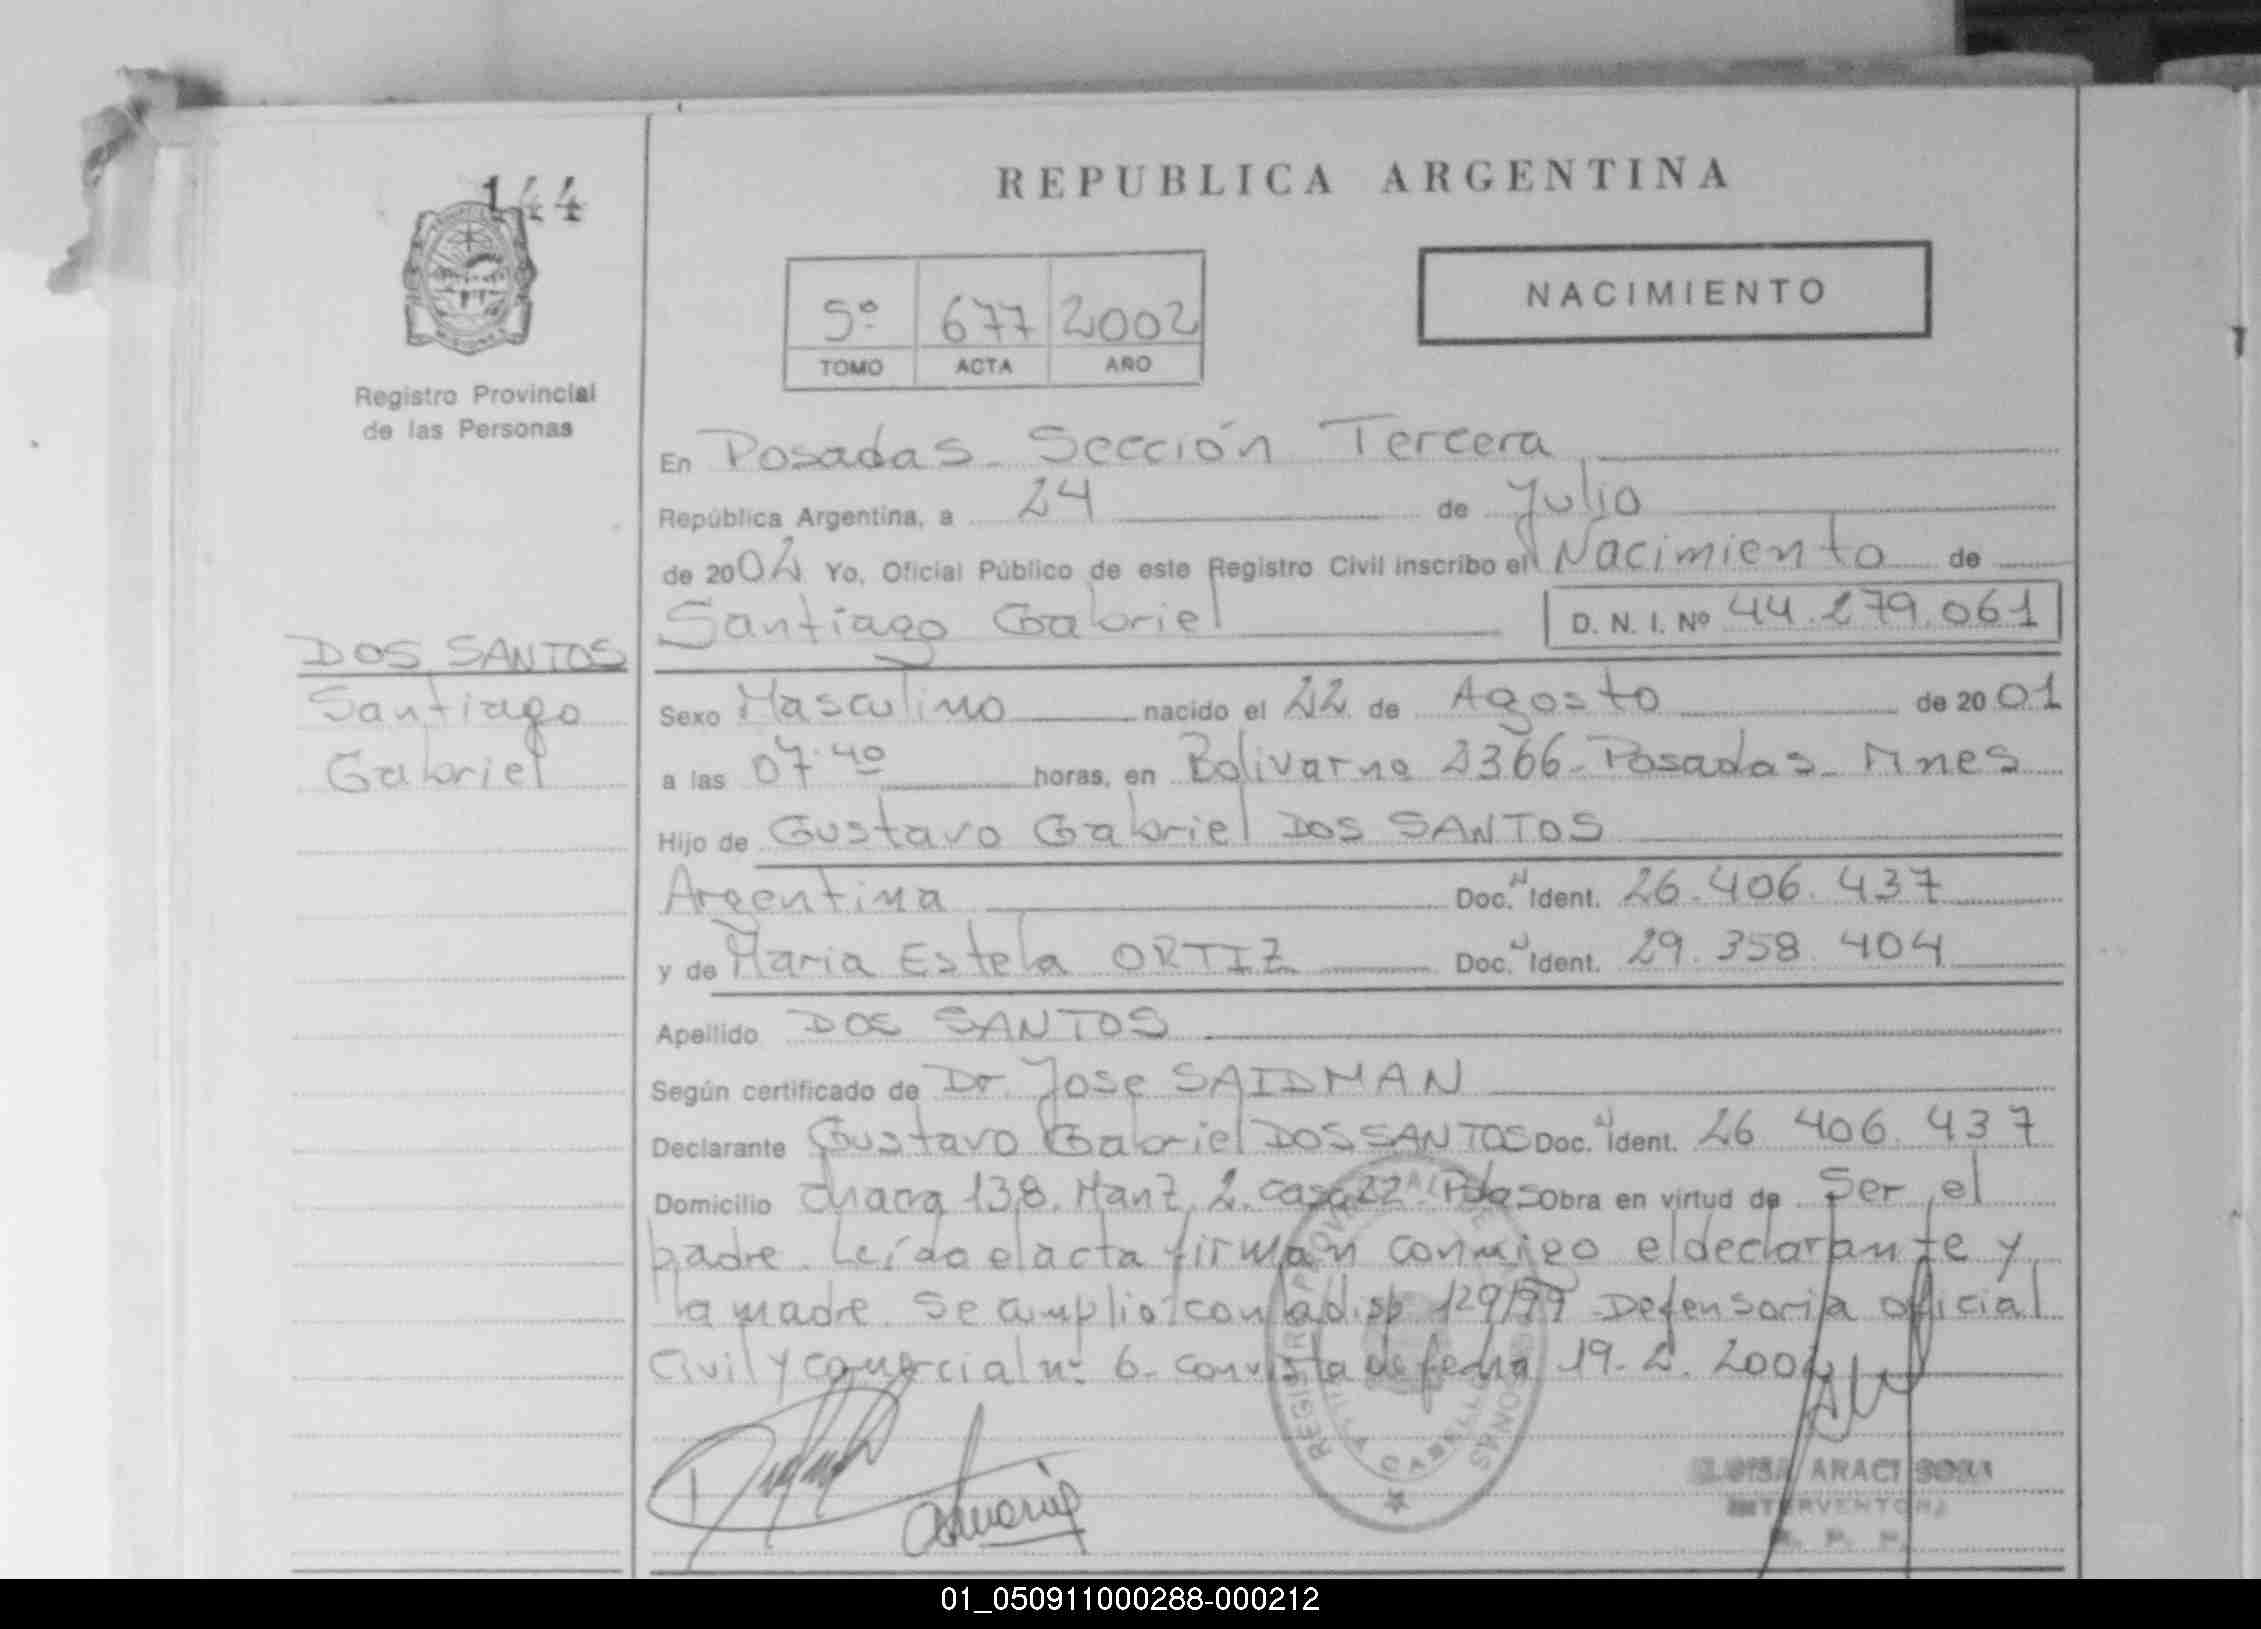 144
REPUBLICA ARGENTINA
NACIMIENTO
5º 677 2002
TOMO ACTA AÑO
Registro Provincial
de las Personas
En Posadas Sección Tercera
República Argentina, a 24 de Julio
de 2002 Yo, Oficial Público de este Registro Civil inscribo el Nacimiento de
Santiago Gabriel D. N. I. Nº 44.279.061
DOS SANTOS
Santiago
Gabriel
Sexo Masculino nacido el 22 de Agosto de 2001
a las 07.40 horas, en Bolivar nº 2366 - Posadas - Mnes
Hijo de Gustavo Gabriel DOS SANTOS
Argentina Doc. N Ident. 26.406.437
y de Maria Estela ORTIZ Doc. N Ident. 29.358.404
Apellido DOS SANTOS
Según certificado de Dr. Jose SAIDMAN
Declarante Gustavo Gabriel DOS SANTOS Doc. N Ident. 26.406.437
Domicilio chacra 138. Manz 2. casa 22. Pdas Obra en virtud de Ser el
padre. Leído el acta firman conmigo el declarante y
la madre. Se amplio: con la disp 129/99 Defensoria oficial
Civil y comercial nº 6 - con vista de fecha 19.2.2002
REGISTRO PROVINCIAL DE LAS PERSONAS
ARACI SOSA
INTERVENTORA
R. P. P.
01_050911000288-000212